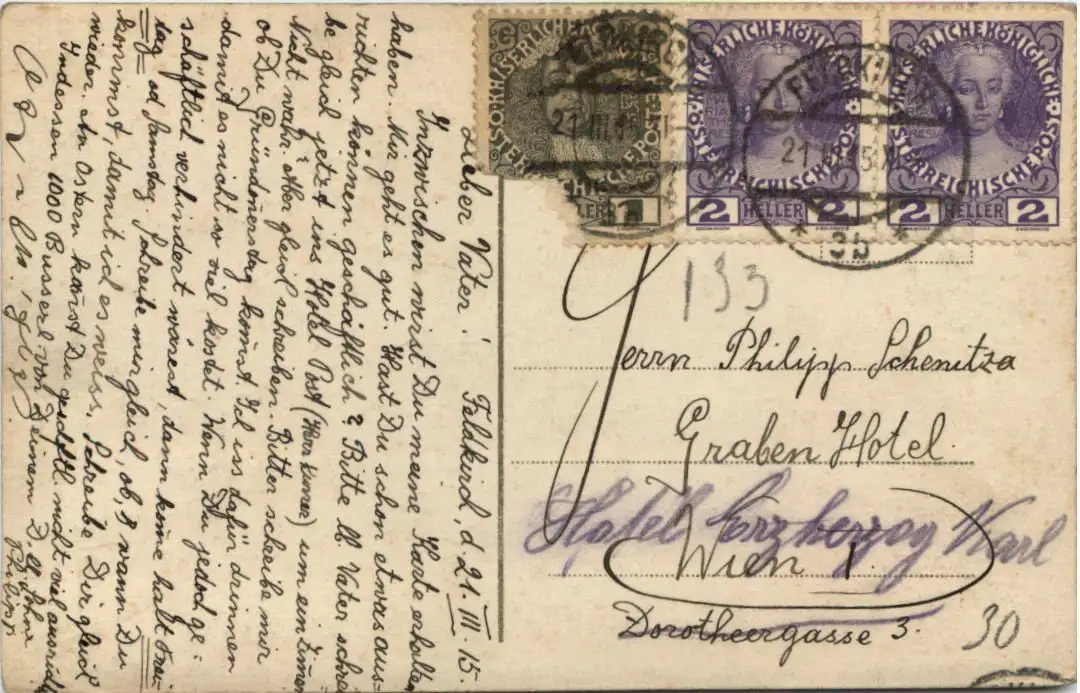 Lieber Vater! Feldkirch, d. 21. III. 15.
Inzwischen wirst Du meine Karte erhalten
haben. Mir geht es gut. Hast Du schon etwas aus-
richten können geschäftlich? Bitte lb. Vater schrei
be gleich jetzt ins Hotel Post (Herr) um ein Zimmer
Nicht wahr? Aber gleich schreiben. Bitte schreibe mir
ob Du Gründonnerstag kommst. Ich dafür drinnen
damit es nicht so viel kostet. Wenn Du jedoch ge-
schäftlich verhindert wärest, dann komme halt Frei-
tag od Samstag. Schreibe mir gleich, ob, & wann Du
kommst, damit ich es weiss. Schreibe Dir gleich
wieder. An Ostern kannst Du geschftl. nicht viel ausricht
Indessen 1000 Busserl von Deinem Sohne
KAISERLICHE KÖNIGLICHE ÖSTERREICHISCHE POST
HELLER 1
KAISERLICHE KÖNIGLICHE ÖSTERREICHISCHE POST
2 HELLER 2
KAISERLICHE KÖNIGLICHE ÖSTERREICHISCHE POST
2 HELLER 2
FELDKIRCH
21. III. 15
* 3b *
133
Herrn Philipp Schenitza
Graben Hotel.
Hotel Erzherzog Karl
Wien I.
Dorotheergasse 3.
30